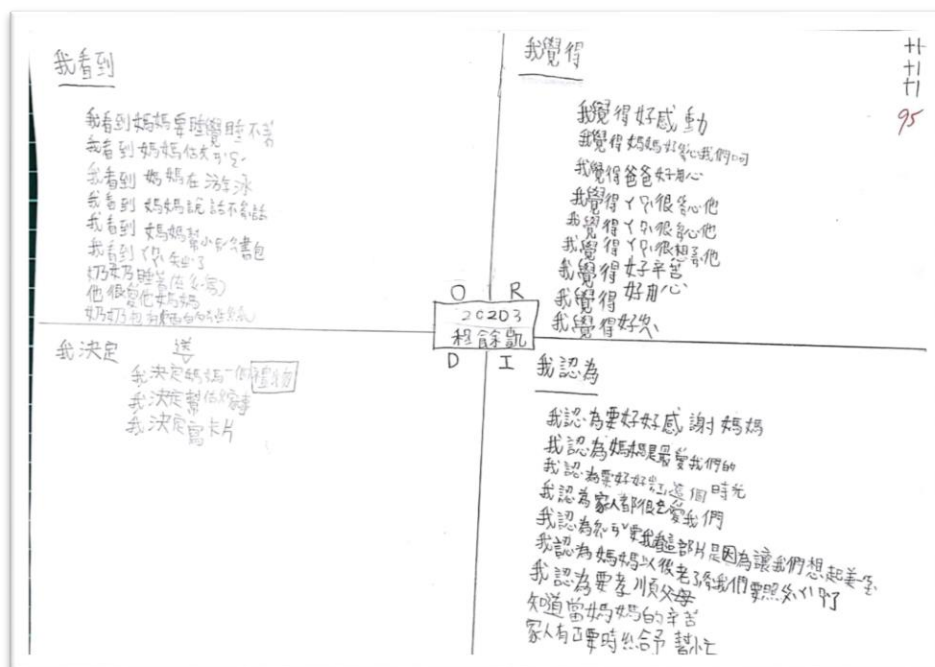 我看到
我看到媽媽要睡覺睡不著
我看到媽媽
我看到媽媽在游泳
我看到媽媽說話不
我看到媽媽幫小 書包
我看到
奶奶睡著
他很愛他媽媽
奶奶
我覺得
+1
+1
+1
95
我覺得好感動
我覺得媽媽好 我們ㄛ
我覺得爸爸好用心
我覺得ㄚㄇㄚ很 他
我覺得ㄚㄇㄚ很 他
我覺得ㄚㄇㄚ很想 他
我覺得好辛苦
我覺得好用心
我覺得好
O R
20203
程餘凱
D I
我決定
送
我決定媽媽一個禮物
我決定幫 家事
我決定寫卡片
我認為
我認為要好好感謝媽媽
我認為媽媽是最愛我們的
我認為要好好 這個時光
我認為家人都很 愛我們
我認為 要我看這部片是因為讓我們想起
我認為媽媽以後老了 我們要照
我認為要孝順父母
知道當媽媽的辛苦
家人有 要時給予幫忙